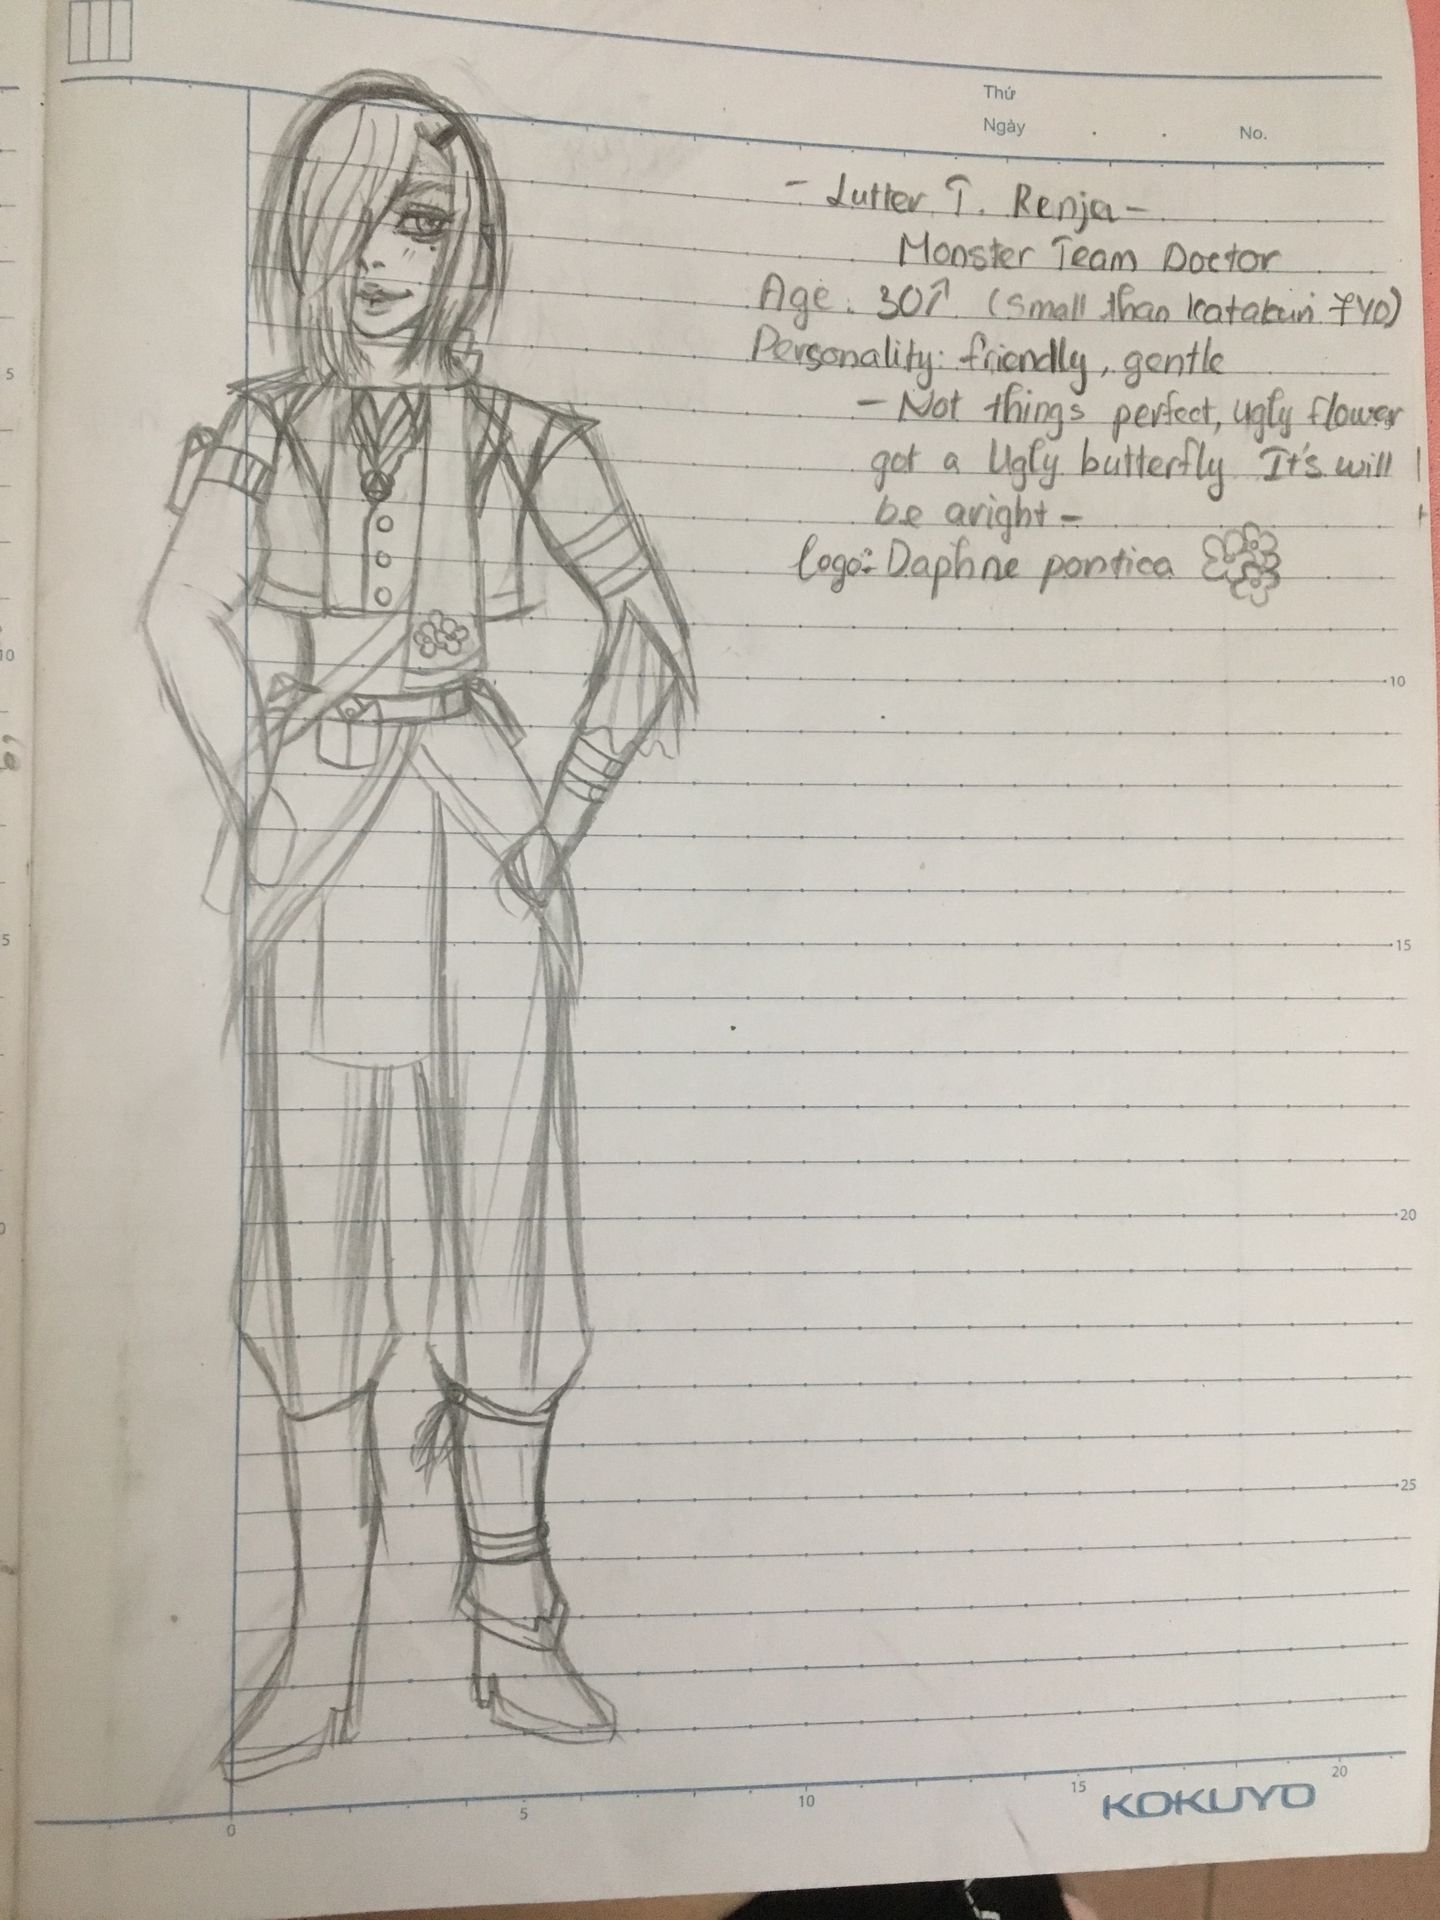 Thứ
Ngày . . No.
- Lutter T. Renja -
Monster Team Doctor
Age: 30↑ (small than katakuri 7YO)
Personality: friendly, gentle
- Not things perfect, ugly flower
got a Ugly butterfly It's will
be aright -
logo: Daphne pontica
5
10
10
5
15
20
25
0
5
10
15
20
KOKUYO